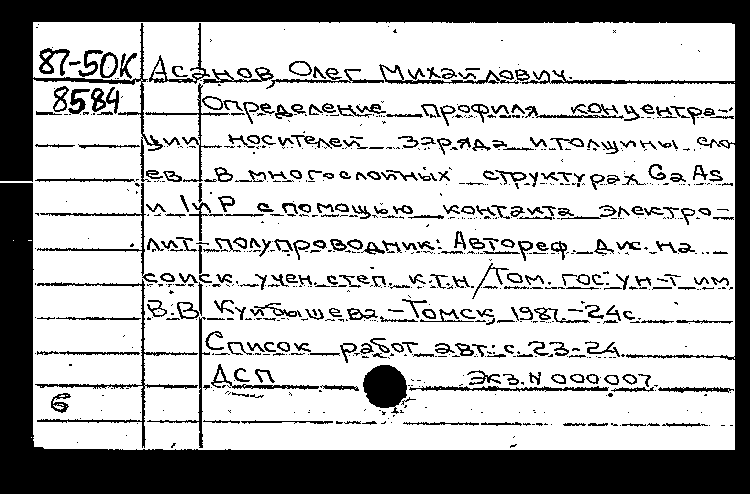 87-50К Асанов, Олег Михайлович.
8584 Определение профиля концентра-
ции носителей заряда и толщины сло-
ев в многослойных структурах GaAs
и InP с помощью контакта электро-
лит-полупроводник: Автореф. дис. на
соиск. учен. степ. к.т.н / Том. гос. ун-т им
В.В Куйбышева. - Томск, 1987. - 24с.
Список работ авт.: с. 23-24
ДСП Экз. N 000007.
6